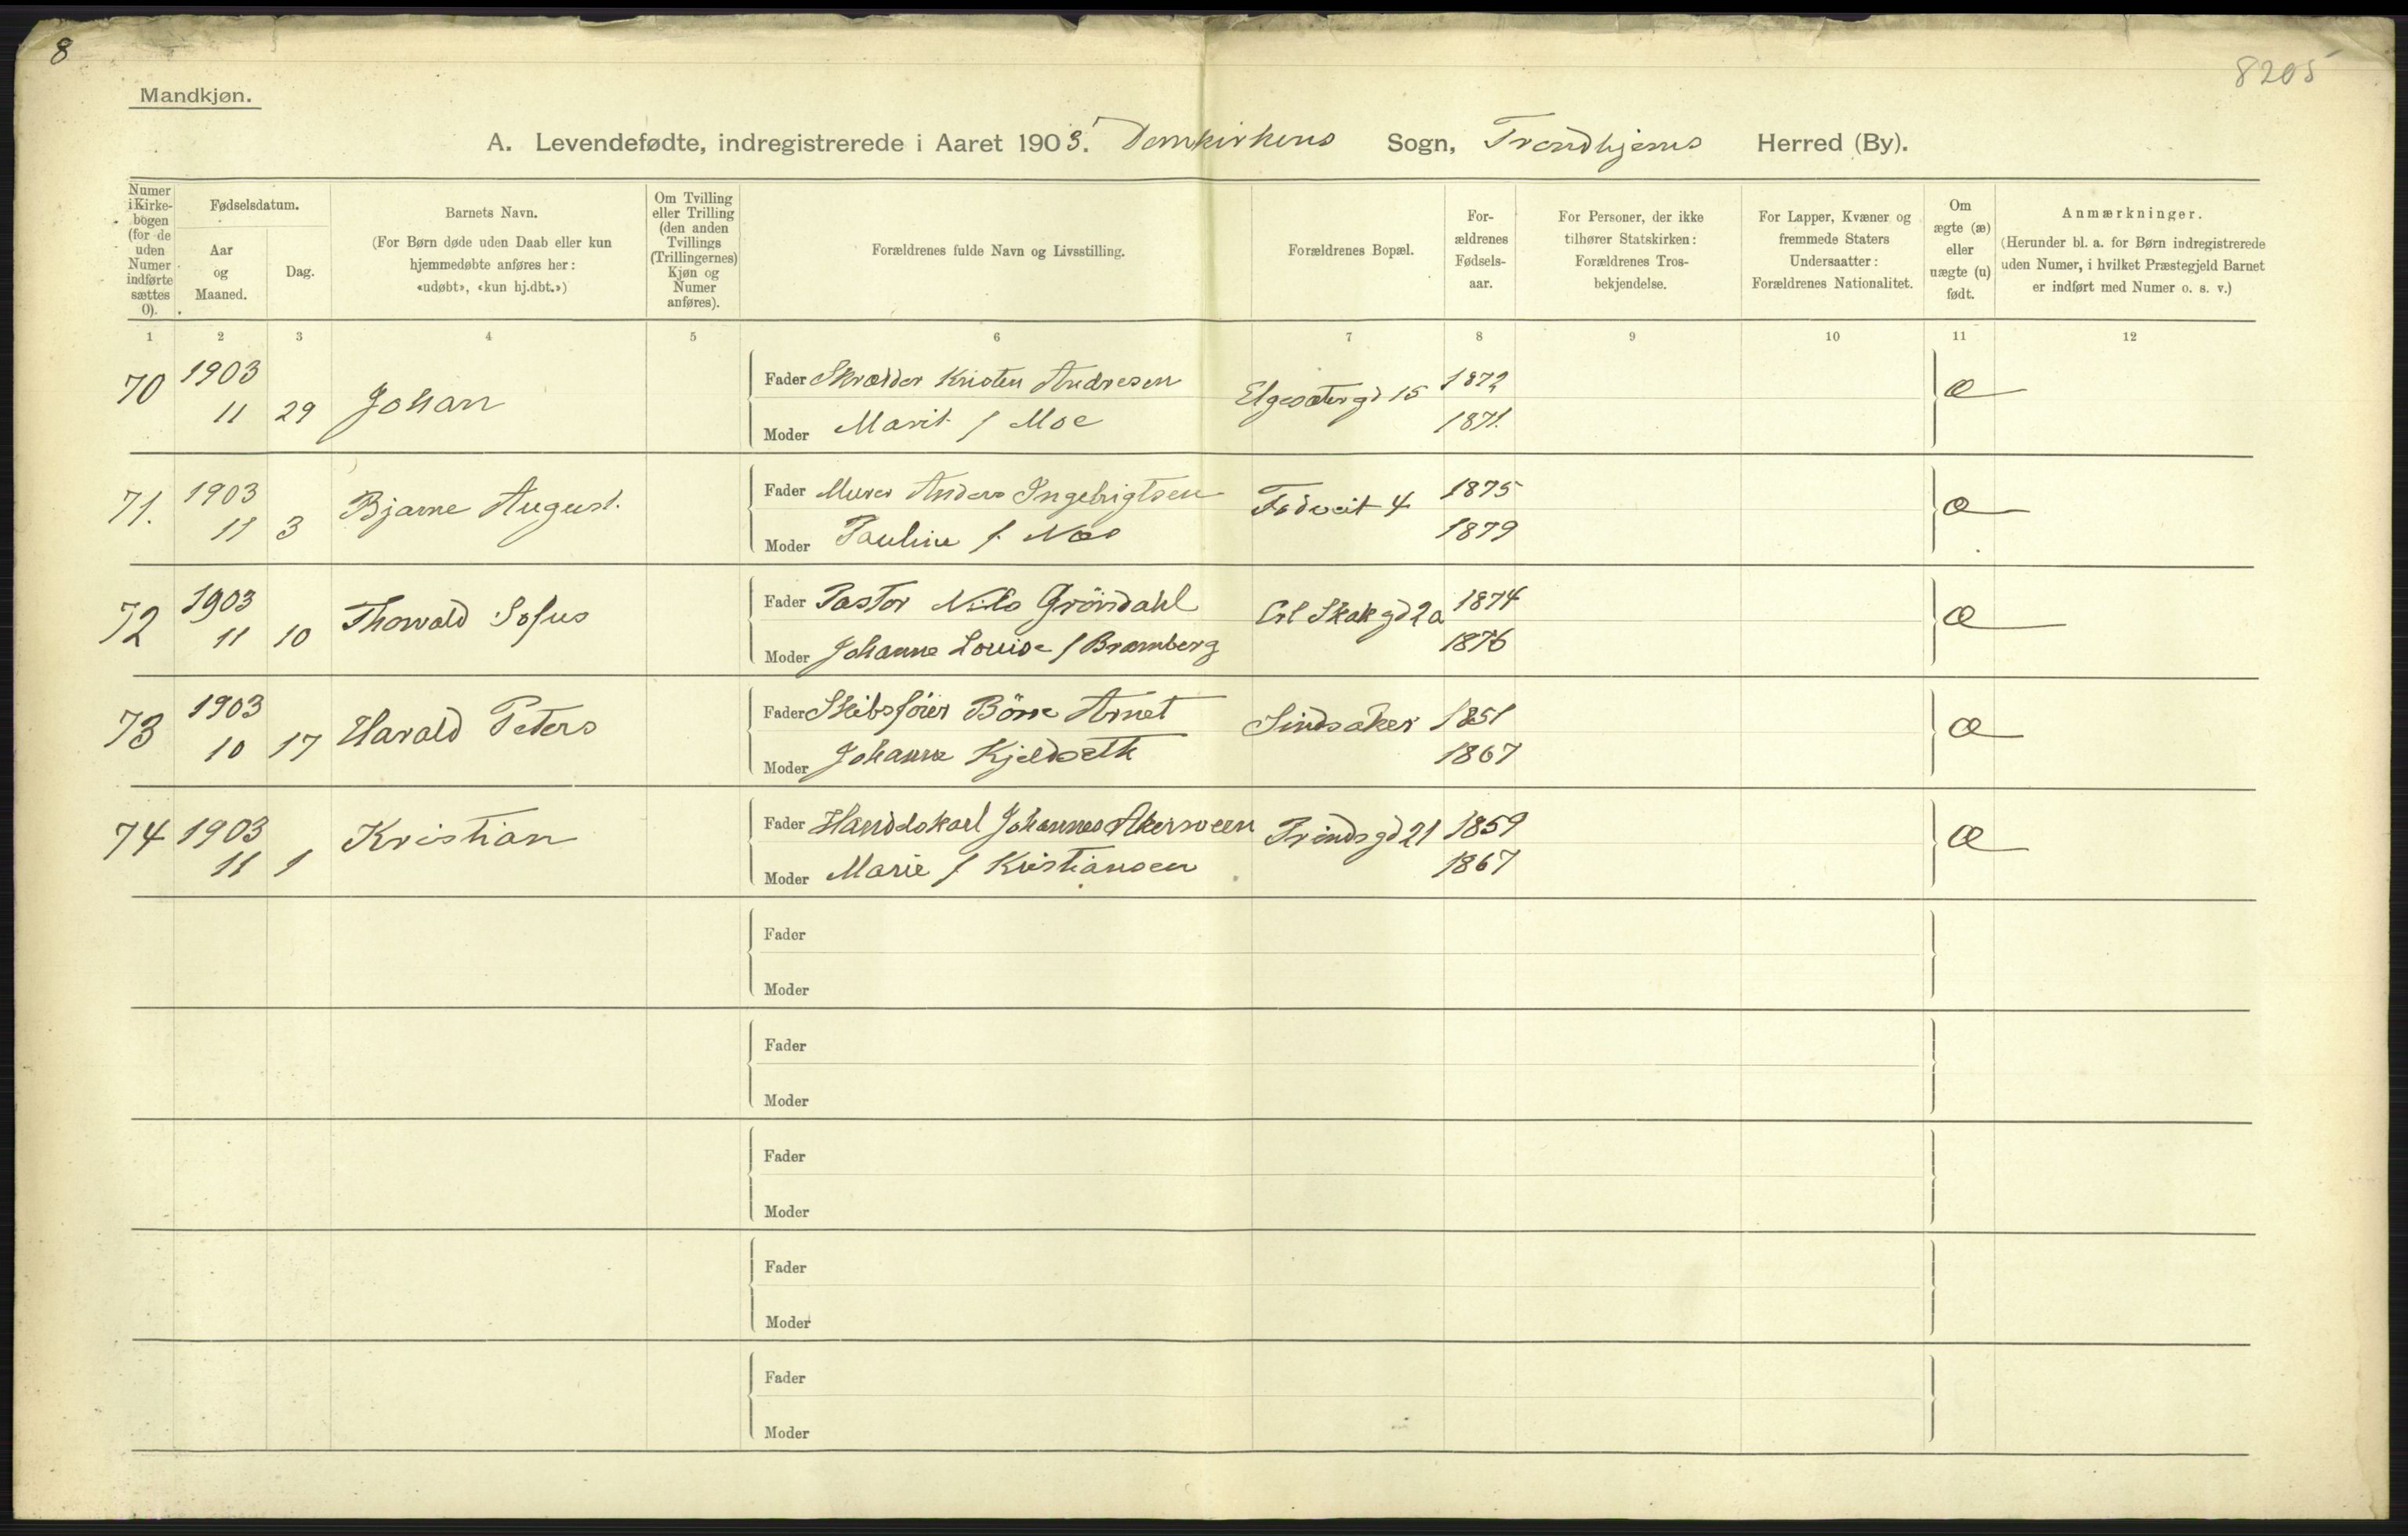 8
8205
Mandkjøn.
A. Levendefødte, indregistrerede i Aaret 1903. Domkirkens Sogn, Trondhjems Herred (By).
Numer i Kirkebogen (for de uden Numer indførte sættes 0).
Fødselsdatum.
Aar og Maaned.
Dag.
Barnets Navn.
(For Børn døde uden Daab eller kun hjemmedøbte anføres her: «udøbt», «kun hj.dbt.»)
Om Tvilling eller Trilling (den anden Tvillings (Trillingernes) Kjøn og Numer anføres).
Forældrenes fulde Navn og Livsstilling.
Forældrenes Bopæl.
Forældrenes Fødselsaar.
For Personer, der ikke tilhører Statskirken: Forældrenes Trosbekjendelse.
For Lapper, Kvæner og fremmede Staters Undersaatter: Forældrenes Nationalitet.
Om ægte (æ) eller uægte (u) født.
Anmærkninger.
(Herunder bl. a. for Børn indregistrerede uden Numer, i hvilket Præstegjeld Barnet er indført med Numer o. s. v.)
1 2 3 4 5 6 7 8 9 10 11 12
70 1903 Fader Skrædder Kristen Andresen Elgesætergd 15 1872 æ
11 29 Johan Moder Marit f Moe 1871.
71. 1903 Bjarne August. Fader Murer Anders Ingebrigtsen 4 1875 æ
11 3 Moder Pauline f. Næs 1879
72 1903 Thorvald Sofus Fader Pastor Nils Gröndahl Skak gd 2a 1874 æ
11 10 Moder Johanne Louise f Bramberg 1876
73 1903 Harald Peters Fader Skibsfører Börre Arnet Sindsaker 1851 æ
10 17 Moder Johanna Kjeldseth 1867
74 1903 Kristian Fader Handelskarl Johannes Akersveen Prindsgd 21 1859 æ
11 1 Moder Marie f Kristiansen 1867
Fader
Moder
Fader
Moder
Fader
Moder
Fader
Moder
Fader
Moder